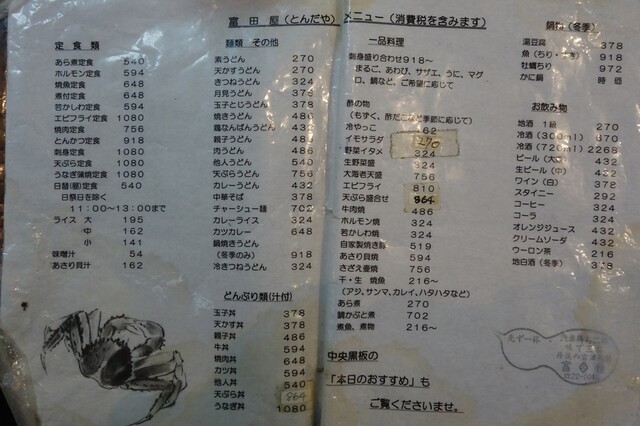 富田屋(とんだや)メニュー(消費税を含みます)
定食類
あら煮定食 540
ホルモン定食 594
焼魚定食 648
煮付定食 648
若かしわ定食 594
エビフライ定食 1080
焼肉定食 756
とんかつ定食 918
刺身定食 1080
天ぷら定食 1080
うなぎ蒲焼定食 1080
日替(昼)定食 540
日祭日を除く
11:00~13:00まで
ライス 大 195
中 162
小 141
味噌汁 54
あさり貝汁 162
麺類 その他
素うどん 270
天かすうどん 270
きつねうどん 324
月見うどん 378
玉子とじうどん 378
焼きうどん 486
鶏なんばうどん 432
親子うどん 486
肉うどん 486
他人うどん 540
天ぷらうどん 756
カレーうどん 432
中華そば 378
チャーシュー麺 702
カレーライス 324
カツカレー 648
鍋焼きうどん
(冬季のみ) 918
冷きつねうどん 324
どんぶり類(汁付)
玉子丼 378
天かす丼 378
親子丼 486
牛丼 594
焼肉丼 648
カツ丼 594
他人丼 540
天ぷら丼 864
うなぎ丼 1080
一品料理
刺身盛り合わせ918~
まるご、あわび、サザエ、うに、マグ
ロ、鯛など、ご希望に応じて
酢の物
(もずく、酢だこなど季節に応じて)
冷やっこ 162
イモサラダ 270
野菜イタメ 324
生野菜盛 324
大海老天盛 756
エビフライ 810
天ぷら盛合せ 864
牛肉焼 486
ホルモン焼 324
若かしわ焼 324
自家製焼き豚 519
あさり貝焼 594
さざえ壷焼 756
干・生 焼魚 216~
(アジ、サンマ、カレイ、ハタハタなど)
あら煮 270
鯛かぶと煮 702
煮魚、煮物 216~
中央黒板の
「本日のおすすめ」も
ご覧くださいませ。
鍋物(冬季)
湯豆腐 378
魚(ちり・すき) 918
牡蠣ちり 972
かに鍋 時価
お飲み物
地酒 1級 270
冷酒(300ml) 870
冷酒(720ml) 2268
ビール(大) 432
生ビール(中) 432
ワイン(白) 378
スタイニー 292
コーヒー 324
コーラ 324
オレンジジュース 432
クリームソーダ 432
ウーロン茶 216
地白酒(冬季)